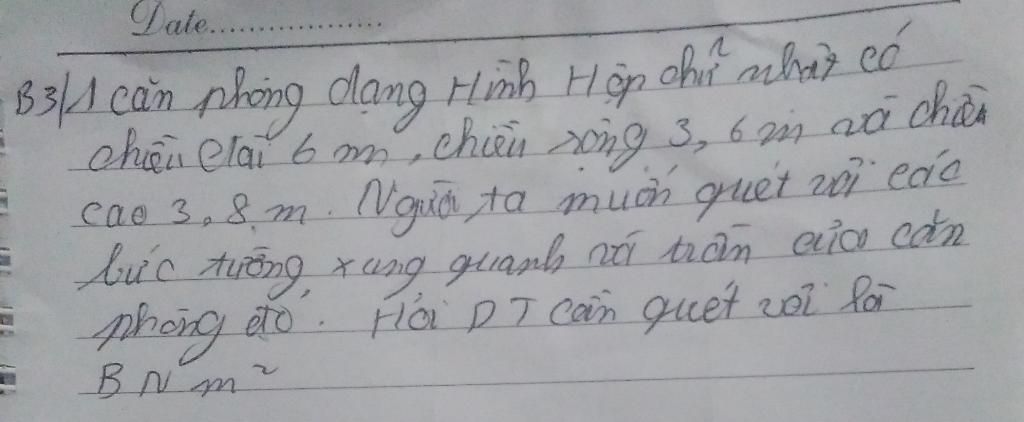 Date..................
B3/ 1 căn phòng dạng Hình Hộp chữ nhật có
chiều dài 6 m, chiều rộng 3,6 m và chiều
cao 3,8 m. Người ta muốn quét vôi các
bức tường xung quanh và trần của căn
phòng đó. Hỏi DT cần quét vôi là
BN m²